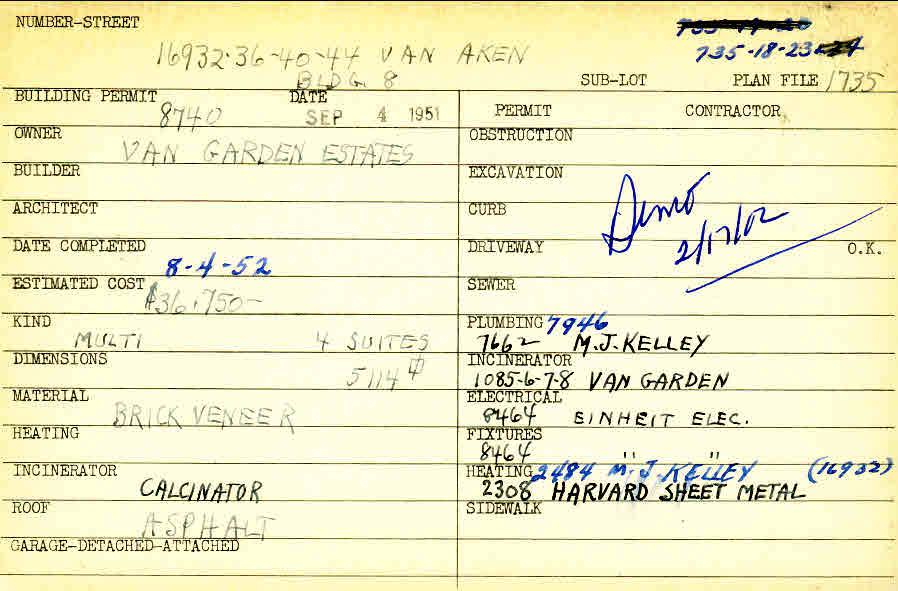 NUMBER-STREET
16932-36-40-44 VAN AKEN
BLDG. 8
735-18-23
SUB-LOT PLAN FILE 1735
BUILDING PERMIT 8740 DATE SEP 4 1951
OWNER VAN GARDEN ESTATES
BUILDER
ARCHITECT
DATE COMPLETED 8-4-52
ESTIMATED COST $36,750-
KIND MULTI 4 SUITES
DIMENSIONS 5114
MATERIAL BRICK VENEER
HEATING
INCINERATOR CALCINATOR
ROOF ASPHALT
GARAGE-DETACHED-ATTACHED
PERMIT CONTRACTOR
OBSTRUCTION
EXCAVATION
CURB
Demo 2/17/02
DRIVEWAY O.K.
SEWER
PLUMBING 7946
7662 M.J. KELLEY
INCINERATOR
1085-6-7-8 VAN GARDEN
ELECTRICAL
8464 EINHEIT ELEC.
FIXTURES
8464 " "
HEATING 2484 M.J. KELLEY (16932)
2308 HARVARD SHEET METAL
SIDEWALK